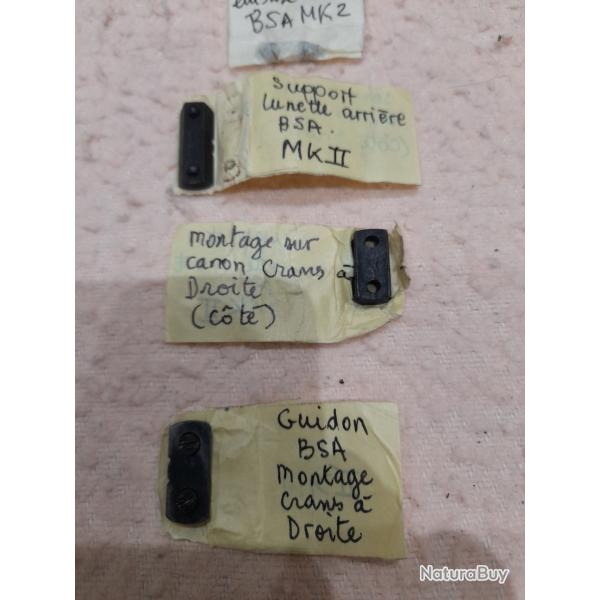 BSA MK2
Support
lunette arrière
BSA.
MK II
montage sur
canon crans à
Droite
(côté)
Guidon
BSA
Montage
crans à
Droite
NaturaBuy